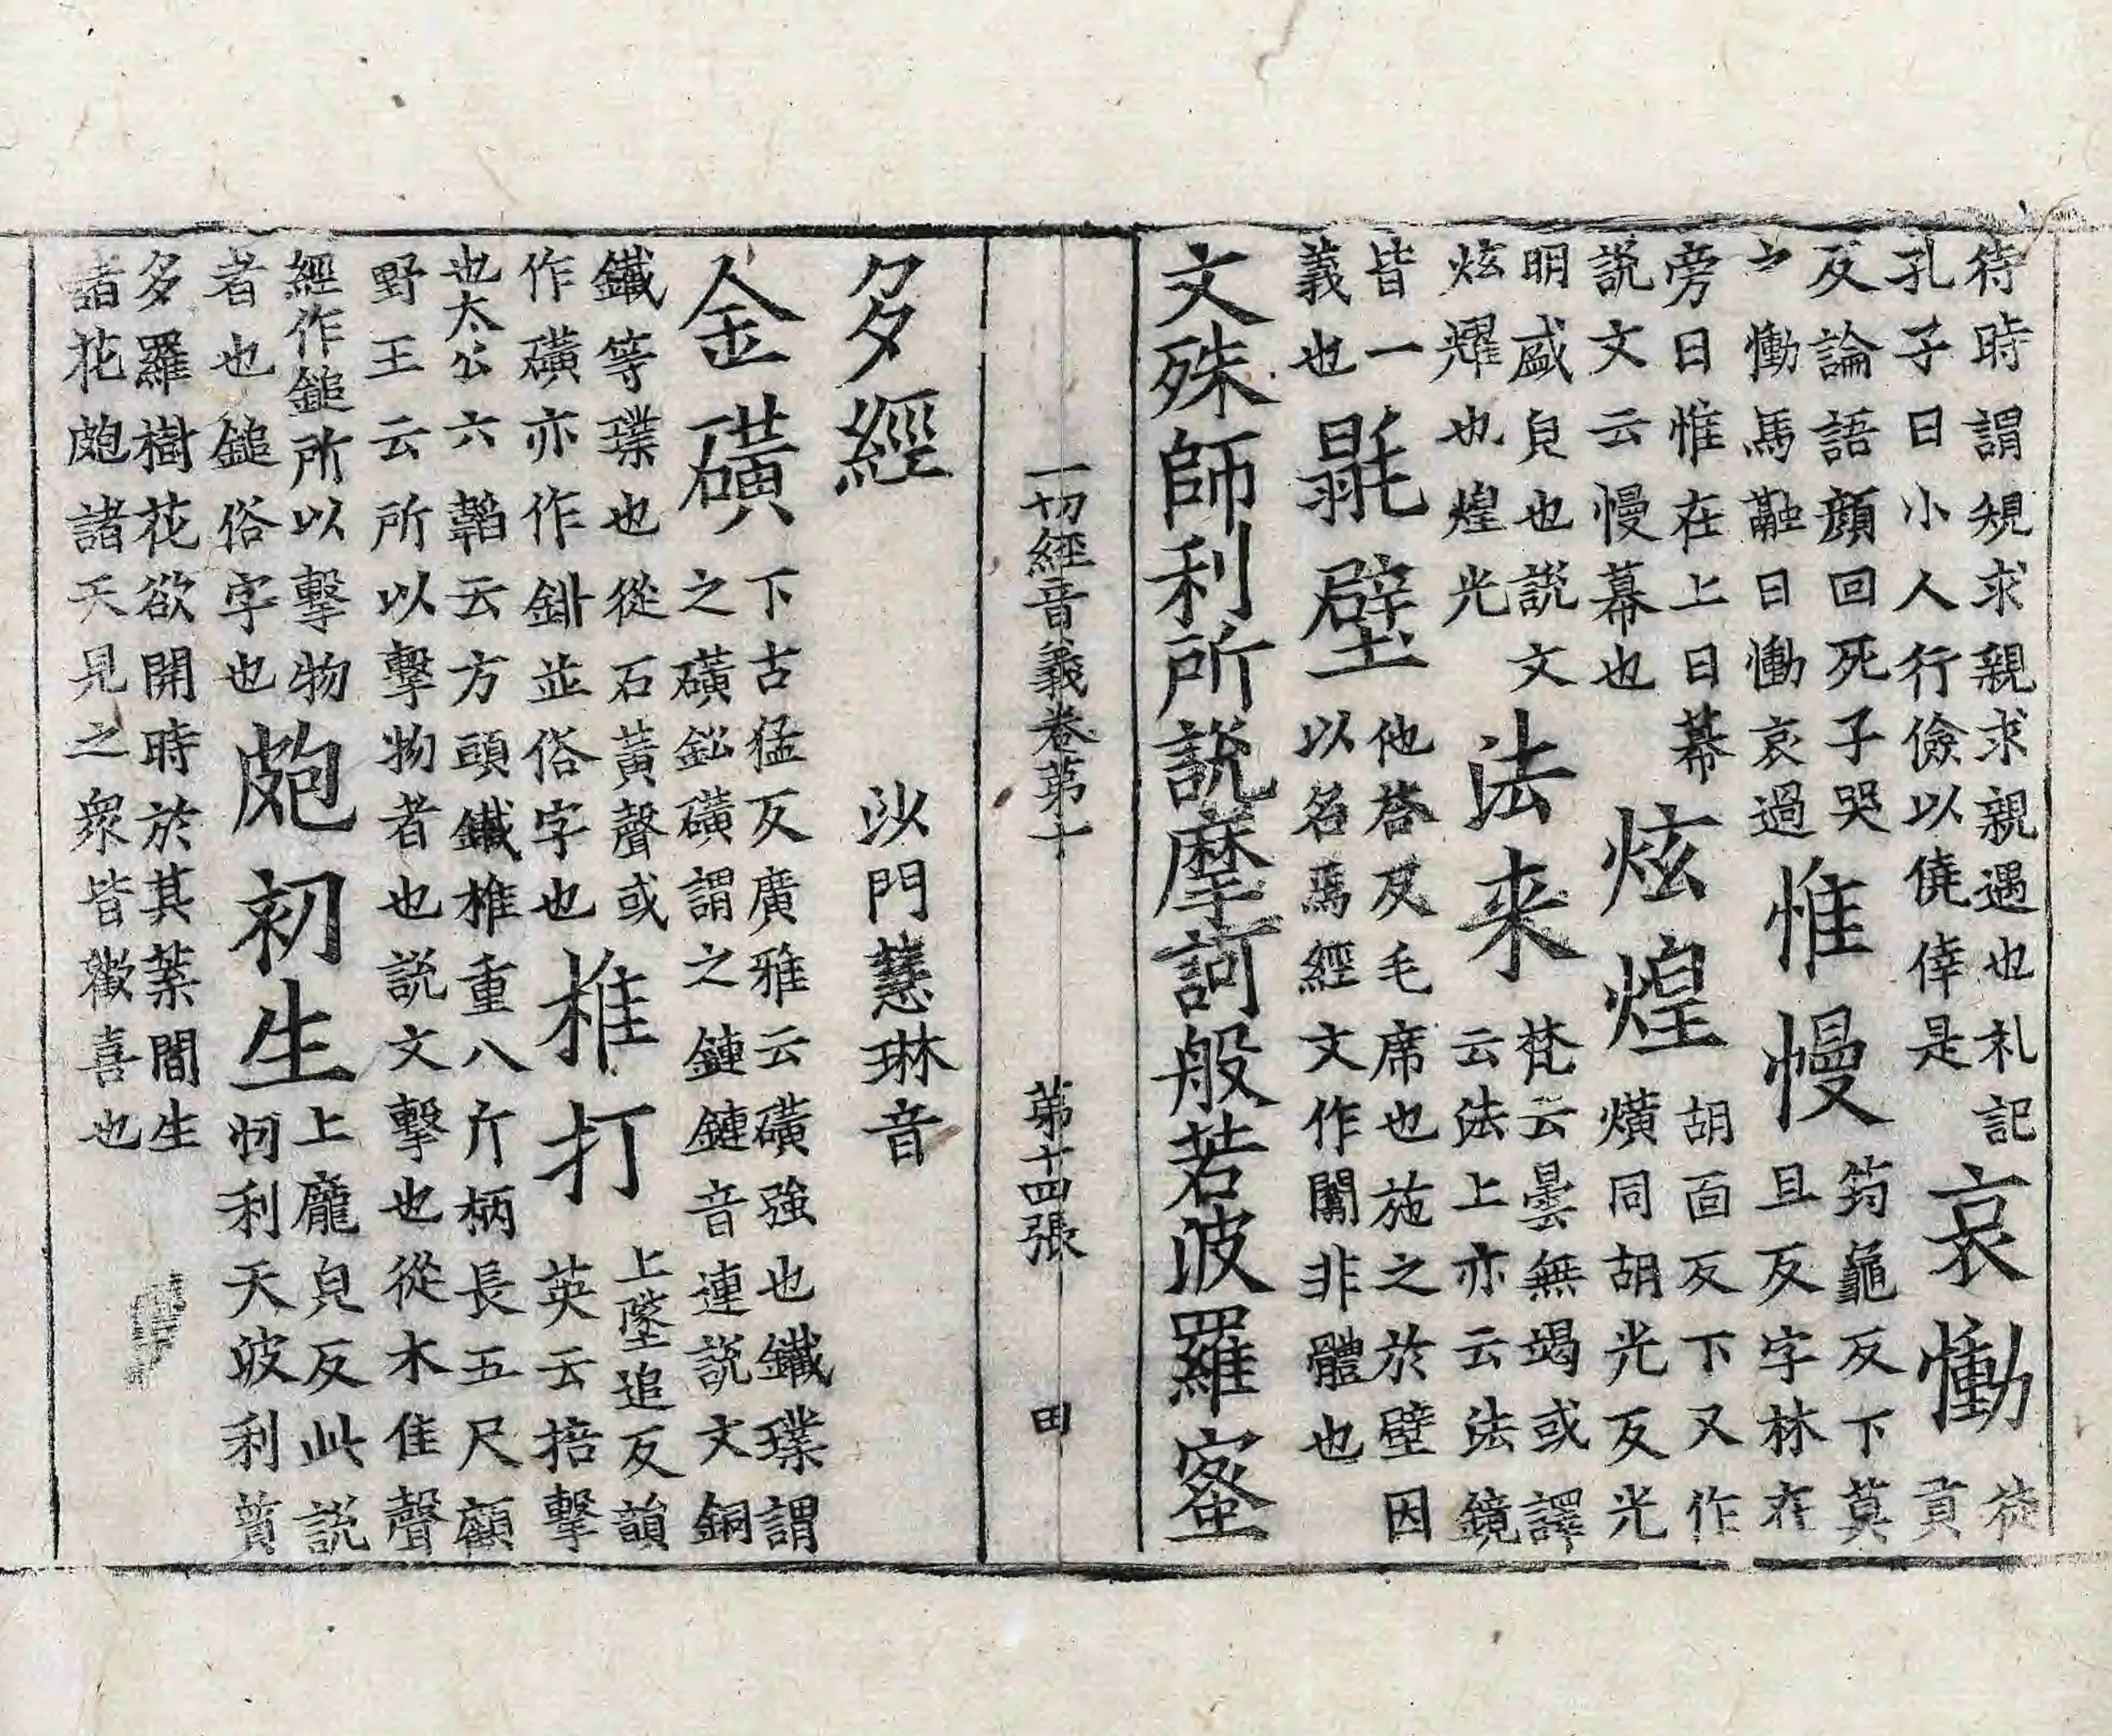 待時謂規求親求親遇也札記
孔子曰小人行儉以僥倖是
哀慟
徒
貢
反論語顔回死子哭
之慟馬融曰慟哀過
惟慢
筠龜反下莫
且反字林在
旁曰惟在上曰幕
説文云慢幕也
炫煌
胡面反下又作
熿同胡光反光
明盛皃也説文
炫燿也煌光
法来
梵云曇無竭或譯
云法上亦云法鏡
皆一
義也
毾壁
他荅反毛席也施之於壁因
以名焉經文作闒非體也
文殊師利所説摩訶般若波羅蜜
一切經音義卷第十 第十四張 田
多經 沙門慧琳音
金礦
下古猛反廣雅云礦強也鐵璞謂
之礦鉱礦謂之鏈鏈音連説文銅
鐵等璞也從石黃聲或
作磺亦作鉼並俗字也
椎打
上墜追反韻
英云掊擊
也太公六韜云方頭鐵椎重八斤柄長五尺顧
野王云所以擊物者也説文擊也從木隹聲
經作鎚所以擊物
者也鎚俗字也
皰初生
上龐皃反此説
忉利天波利質
多羅樹花欲開時於其葉間生
諸花皰諸天見之衆皆歡喜也